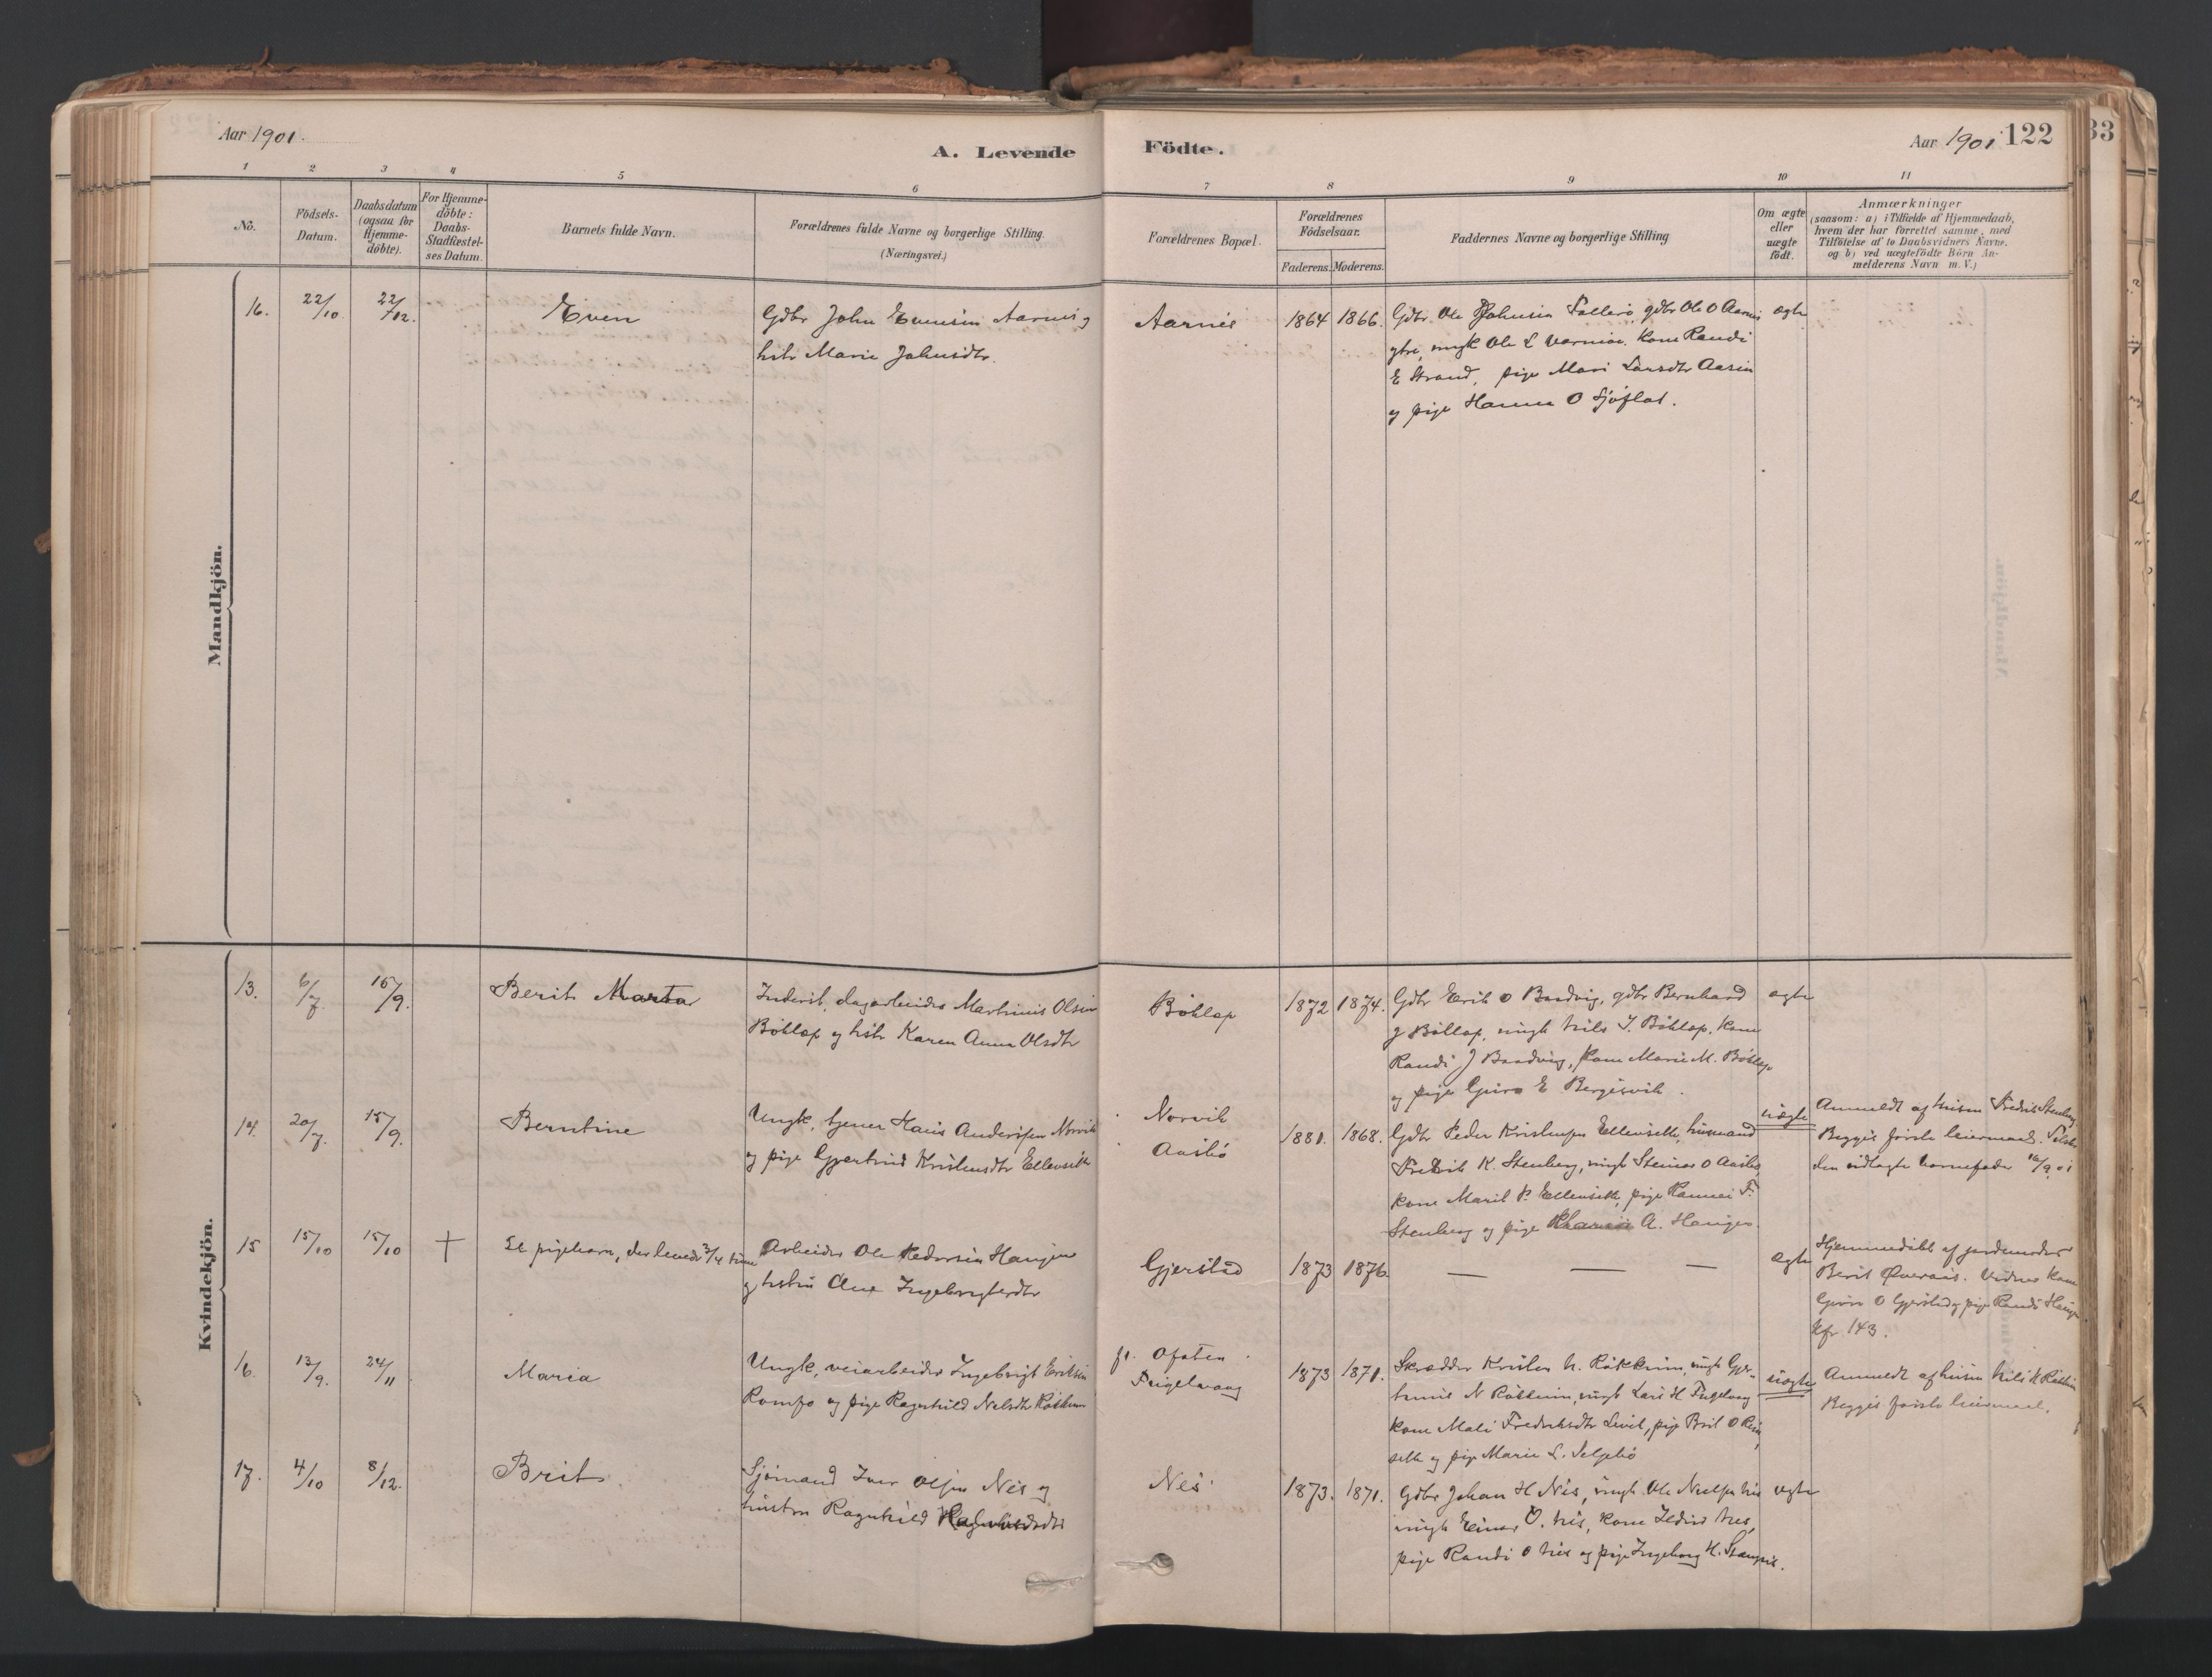 Aar 1901.
A. Levende Födte.
Aar 1901 122
33
1 2 3 4 5 6 7 8 9 10 11
No.
Födsels-
Datum.
Daabsdatum
(ogsaa for
Hjemme-
döbte).
For Hjemme-
döbte:
Daabs-
Stadfæstel-
ses Datum.
Barnets fulde Navn.
Forældrenes fulde Navne og borgerlige Stilling.
(Næringsvei.)
Forældrenes Bopæl.
Forældrenes
Födselsaar.
Faderens. Moderens.
Faddernes Navne og borgerlige Stilling
Om ægte
eller
uægte
födt.
Anmærkninger
(saasom: a) i Tilfælde af Hjemmedaab,
hvem der har forrettet samme, med
Tilföielse af to Daabsvidners Navne,
og b) ved uægtefödte Börn An-
melderens Navn m. V.)
Mandkjön.
16. 22/10 22/12. Even
Gdbr John Evensen Aarnes og
hstr Marie Johnsdtr.
Aarnes
1864 1866.
Gdbr. Ole Johnsen Sollerö, gdbr Ole O Aarnes
ungk Ole L kone Randi
E Strand, pige Mari Larsdtr Aasen
og pige Hanna O Sjöflot.
ægte
Kvindekjön.
13. 6/7. 15/9. Berit Marta
Inderst, dagarbeider Martinus Olsen
Böklep og hstr Karen Anna Olsdtr
Böklep
1872 1874.
Gdbr Erik O Boedvig, gdbr Bernhard
J Böklep, ungk Nils J. Böklep, kone
Randi J Boedvig, kone Marie M. Böklep
og pige Guro E Bergisvik.
ægte
14. 20/7. 15/9. Berntine
Ungk, tjener Hans Anderssen Norvik
og pige Gjertrud Kristensdtr Ellensette
Norvik
Aasbö
1881. 1868.
Gdbr Peder Kristensen Ellensette, husmand
Fredrik K. Stenberg, ungk Steinar O Aasbö,
kone Marit P. Ellensette, pige F.
Stenberg og pige A. Haugen.
uægte
Anmeldt af husm Fredrik Stenberg
Begges förste leiermaal.
den udlagte barnefader 16/9 01
15 15/10 15/10 † Et pigebarn, der levede 3/4 time
Arbeider Ole Pedersen Haugen
og hustru Ane Ingebrigtsdtr
Gjerstad
1873 1876.
— — —
ægte
Hjemmedöbt af jordemoder
Berit Överaas. Vidner kone
Guro O Gjerstad og pige Randi Haugen
Kfr. 143.
16. 13/9. 24/11 Maria
Ungk, veiarbeider Ingebrigt Eriksen
Romfo og pige Ragnhild Nilsdtr Rökkum
f. t. Ofoten
Fuglevaag
1873 1871.
Skrædder Kristen N. Rökkum, ungk Gjer-
N Rökkum, ungk Lars H Fuglevaag
kone Mali Fredriksdtr pige Brit O
sette og pige Marie L. Seljebö
uægte
Anmeldt af husm Nils K Rökkum
Begges förste leiermaal.
17. 4/10 8/12. Brit
Sjömand Iver Olsen Nes og
hustru Ragnhild
Nes
1873. 1871.
Gdbr Johan H Nes, ungk Ole Nes
ungk Einar O. Nes, kone Nes,
pige Randi O Nes og pige Ingeborg H.
ægte